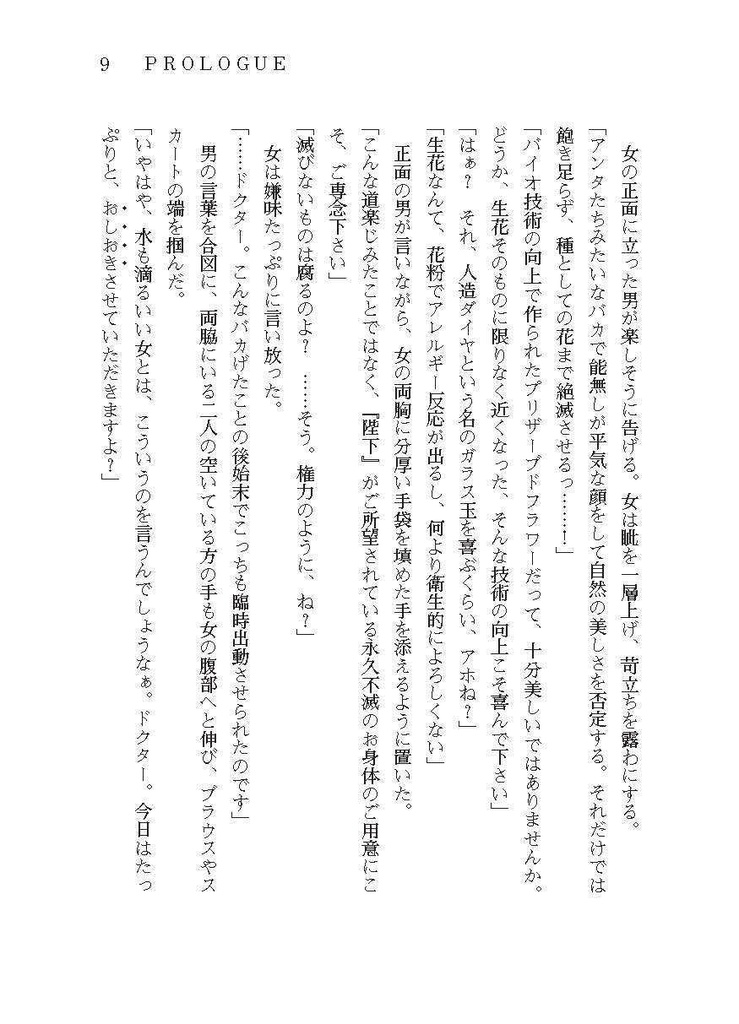 9 PROLOGUE
女の正面に立った男が楽しそうに告げる。女は眦を一層上げ、苛立ちを露わにする。
「アンタたちみたいなバカで能無しが平気な顔をして自然の美しさを否定する。それだけでは
飽き足らず、種としての花まで絶滅させるっ……！」
「バイオ技術の向上で作られたプリザーブドフラワーだって、十分美しいではありませんか。
どうか、生花そのものに限りなく近くなった、そんな技術の向上こそ喜んで下さい」
「はぁ？　それ、人造ダイヤという名のガラス玉を喜ぶくらい、アホね？」
「生花なんて、花粉でアレルギー反応が出るし、何より衛生的によろしくない」
正面の男が言いながら、女の両胸に分厚い手袋を填めた手を添えるように置いた。
「こんな道楽じみたことではなく、『陛下』がご所望されている永久不滅のお身体のご用意にこ
そ、ご専念下さい」
「滅びないものは腐るのよ？　……そう。権力のように、ね？」
女は嫌味たっぷりに言い放った。
「……ドクター。こんなバカげたことの後始末でこっちも臨時出動させられたのです」
男の言葉を合図に、両脇にいる二人の空いている方の手も女の腹部へと伸び、ブラウスやス
カートの端を掴んだ。
「いやはや、水も滴るいい女とは、こういうのを言うんでしょうなぁ。ドクター。今日はたっ
ぷりと、おしおきさせていただきますよ？」